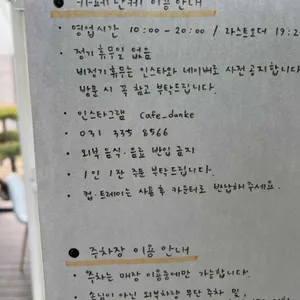 카페단케 이용안내
• 영업시간 10:00 - 20:00 / 라스트오더 19:2
• 정기 휴무일 없음
비정기휴무는 인스타와 네이버로 사전공지합니다.
방문 시 꼭 참고 부탁드립니다.
• 인스타그램 cafe_danke
• 031 335 8566
• 외부 음식·음료 반입 금지
• 1인 1잔 주문 부탁드립니다.
• 컵·트레이는 사용 후 카운터로 반납해주세요.
• 주차장 이용 안내
• 주차는 매장 이용중에만 가능합니다.
• 손님이 아닌 외부차량 무단 주차 및,